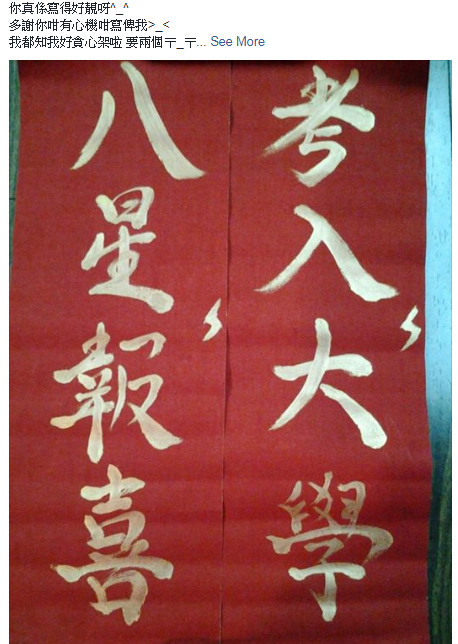 你真係寫得好靚呀^_^
多謝你咁有心機咁寫俾我>_<
我都知我好貪心架啦 要兩個〒_〒... See More
考入大學
八星報喜